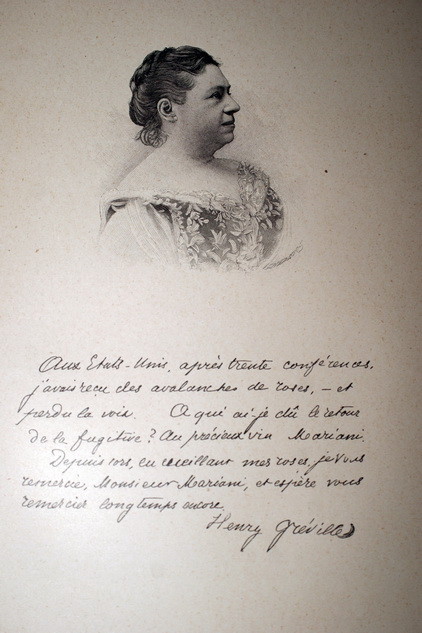 Aux Etats-Unis, après trente conférences,
j'avais reçu des avalanches de roses, — et
perdu la voix. A qui ai-je dû le retour
de la fugitive? Au précieux vin Mariani.
Depuis lors, en cueillant mes roses, je vous
remercie, Monsieur Mariani, et espère vous
remercier longtemps encore.
Henry Gréville